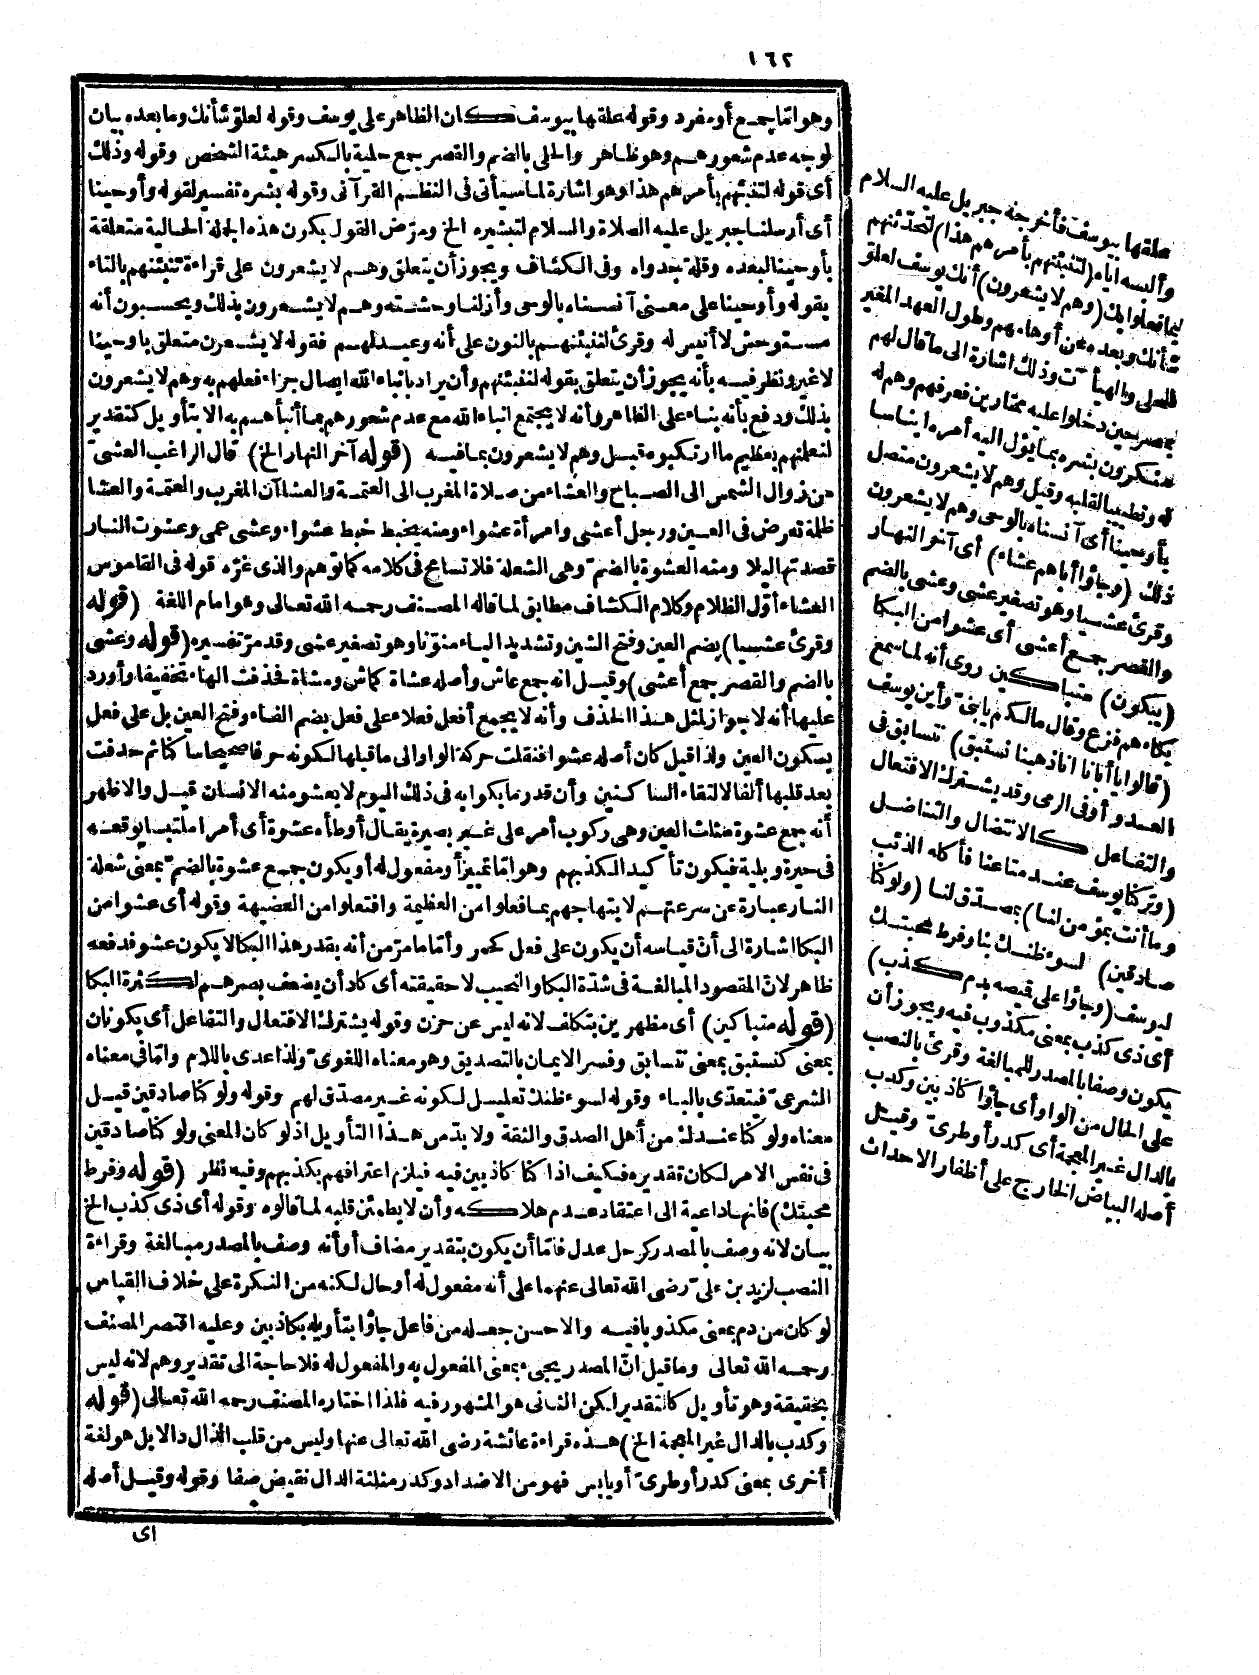 ١٦٢
وهو اما جمع أو مفرد وقوله علقها بيوسف كان الظاهر على يوسف وقوله لعلو شأنك وما بعده بيان
لوجه عدم شعورهم وهو ظاهر والحلى بالضم والقصر جمع حلية بالكسر هيئة الشخص وقوله وذلك
أى قوله لتنبئنهم بأمرهم هذا وهو اشارة لما سيأتى فى النظم القرآنى وقوله بشره تفسير لقوله وأوحينا
أى أرسلنا جبريل عليه الصلاة والسلام لتبشيره الخ ومرّض القول بكون هذه الجملة الحالية متعلقة
بأوحينا لبعده وقلة جدواه وفى الكشاف ويجوز أن يتعلق وهم لا يشعرون على قراءة تنبئنهم بالتاء
بقوله وأوحينا على معنى آنسناه بالوحى وأزلنا وحشته وهم لا يشعرون بذلك ويحسبون أنه
مستوحش لا أنيس له وقرئ لننبئنهم بالنون على أنه وعيد لهم فقوله لا يشعرون متعلق بأوحينا
لا غير ونظر فيه بأنه يجوز أن يتعلق بقوله لننبئنهم وأن يراد بانباء الله ايصال جزاء فعلهم به وهم لا يشعرون
بذلك ودفع بأنه بناء على الظاهر وأنه لا يجتمع انباء الله مع عدم شعورهم بما أنبأهم به الا بتأويل كتقدير
لنعلمنهم بعظيم ما ارتكبوه قبل وهم لا يشعرون بما فيه (قوله آخر النهار الخ) قال الراغب العشىّ
من زوال الشمس الى الصباح والعشاء من صلاة المغرب الى العتمة والعشاآن المغرب والعتمة والعشا
ظلمة تعرض فى العين ورجل أعشى وامرأة عشواء ومنه يخبط خبط عشواء وعشى عمى وعشوت النار
قصدتها ليلا ومنه العشوة بالضمّ وهى الشعلة فلا تسامح فى كلامه كما توهم والذى غرّه قوله فى القاموس
العشاء أوّل الظلام وكلام الكشاف مطابق لما قاله المصنف رحمه الله تعالى وهو امام اللغة (قوله
وقرئ عشيا) بضم العين وفتح الشين وتشديد الياء منوّنا وهو تصغير عشى وقد مرّ تفسيره (قوله وعشى
بالضم والقصر جمع أعشى) وقيل انه جمع عاش وأصله عشاة كماش ومشاة فحذفت الهاء تخفيفا وأورد
عليها أنه لا جواز لمثل هذا الحذف وأنه لا يجمع أفعل فعلاء على فعل بضم الفاء وفتح العين بل على فعل
بسكون العين ولذا قيل كان أصله عشوا فنقلت حركة الواو الى ما قبلها لكونه حرفا صحيحا ساكنا ثم حذفت
بعد قلبها ألفا لالتقاء الساكنين وأن قدر ما بكوا به فى ذلك اليوم لا يعشو منه الانسان قيل والاظهر
أنه جمع عشوة مثلث العين وهى ركوب أمر على غير بصيرة يقال أوطأه عشوة أى أمرا ملتبسا يوقعه
فى حيرة وبلية فيكون تأكيدا لكذبهم وهو اما تمييز أو مفعول له أو يكون جمع عشوة بالضمّ بمعنى شعلة
النار عبارة عن سرعتهم لابتهاجهم بما فعلوا من العظيمة وافتعلوا من العضيهة وقوله أى عشوا من
البكا اشارة الى أنّ قياسه أن يكون على فعل كحمر وأمّا ما مرّ من أنه بقدر هذا البكا لا يكون عشو فدفعه
ظاهر لانّ المقصود المبالغة فى شدّة البكا والنحيب لا حقيقته أى كاد أن يضعف بصرهم لكثرة البكا
(قوله متباكين) أى مظهرين بتكلف لانه ليس عن حزن وقوله يشترك الافتعال والتفاعل أى يكونان
بمعنى كنستبق بمعنى نتسابق وفسر الايمان بالتصديق وهو معناه اللغوىّ ولذا عدى باللام وامّا فى معناه
الشرعىّ فيتعدّى بالباء وقوله لسوء ظنك تعليل لكونه غير مصدّق لهم وقوله ولو كنا صادقين قيل
معناه ولو كنا عندك من أهل الصدق والثقة ولا بدّ من هذا التأويل اذ لو كان المعنى ولو كنا صادقين
فى نفس الامر لكان تقديره فكيف اذا كنا كاذبين فيه فيلزم اعترافهم بكذبهم وفيه نظر (قوله وفرط
محبتك) فانها داعية الى اعتقاد عدم هلاكه وأن لا يطمئن قلبه لما قالوه وقوله أى ذى كذب الخ
بيان لانه وصف بالمصدر كرجل عدل فامّا أن يكون بتقدير مضاف أو أنه وصف بالمصدر مبالغة وقراءة
النصب لزيد بن علىّ رضى الله تعالى عنهما على أنه مفعول له أو حال لكنه من النكرة على خلاف القياس
لو كان من دم بمعنى مكذوبا فيه والاحسن جعله من فاعل جاؤا بتأويله بكاذبين وعليه اقتصر المصنف
رحمه الله تعالى وما قيل انّ المصدر يجىء بمعنى المفعول به والمفعول له فلا حاجة الى تقدير وهم لانه ليس
بحقيقة وهو تأويل كالتقدير لكن الثانى هو المشهور فيه فلذا اختاره المصنف رحمه الله تعالى (قوله
وكدب بالدال غير المعجمة الخ) هذه قراءة عائشة رضى الله تعالى عنها وليس من قلب الذال دالا بل هو لغة
أخرى بمعنى كدر أو طرىّ أو يابس فهو من الاضداد وكدر مثلثة الدال نقيض صفا وقوله وقيل أصله
اى
علقها بيوسف فأخرجه جبريل عليه السلام
وألبسه اياه (لتنبئنهم بأمرهم هذا) لتحدّثنهم
بما فعلوا بك (وهم لا يشعرون) أنك يوسف لعلو
شأنك وبعده عن أوهامهم وطول العهد المغير
للحلى والهيآت وذلك اشارة الى ما قال لهم
بمصر حين دخلوا عليه ممتارين فعرفهم وهم له
منكرون بشره بما يؤل اليه أمره ايناسا
له وتطييبا لقلبه وقيل وهم لا يشعرون متصل
بأوحينا أى آنسناه بالوحى وهم لا يشعرون
ذلك (وجاؤا أباهم عشاء) أى آخر النهار
وقرئ عشيا وهو تصغير عشى وعشى بالضم
والقصر جمع أعشى أى عشوا من البكا
(يبكون) متباكين روى أنه لما سمع
بكاءهم فزع وقال مالكم يا بنىّ وأين يوسف
(قالوا يا أبانا انا ذهبنا نستبق) نتسابق فى
العدو أو فى الرمى وقد يشترك الافتعال
والتفاعل كالانتضال والتناضل
(وتركنا يوسف عند متاعنا فأكله الذئب
وما أنت بمؤمن لنا) بمصدق لنا (ولو كنا
صادقين) لسوء ظنك بنا وفرط محبتك
ليوسف (وجاؤا على قميصه بدم كذب)
أى ذى كذب بمعنى مكذوب فيه ويجوز أن
يكون وصفا بالمصدر للمبالغة وقرئ بالنصب
على الحال من الواو أى جاؤا كاذبين وكدب
بالدال غير المعجمة أى كدر أو طرىّ وقيل
أصله البياض الخارج على أظفار الاحداث